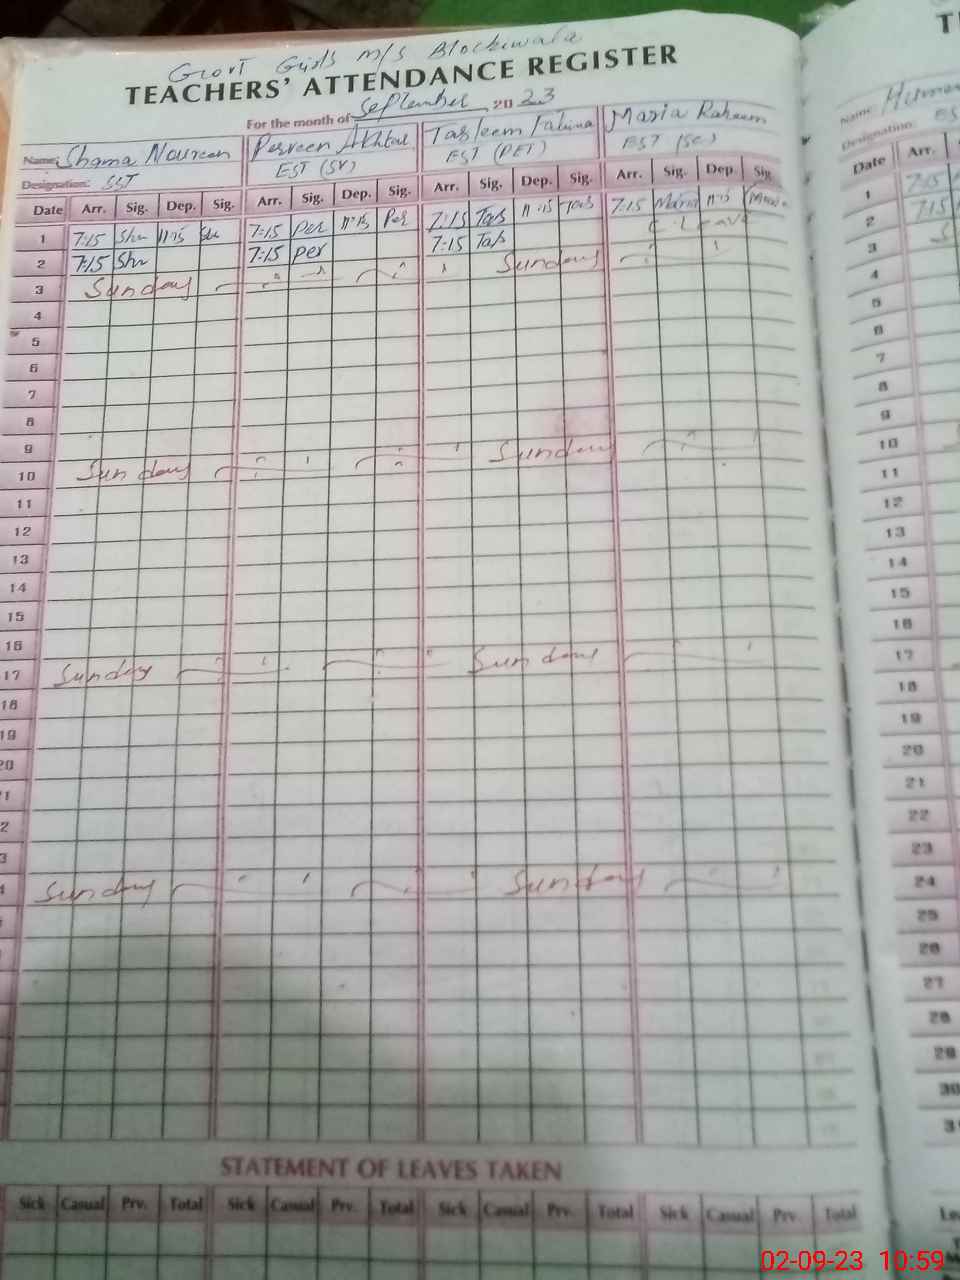 Govt Girls M/S Blockiwala
TEACHERS' ATTENDANCE REGISTER
For the month of September 2023
Name: Shama Noureen Perveen Akhtar Tasleem Fatima Maria Raheem
Designation: SST EST (SV) EST (PET) EST (Sc)
Date Arr. Sig. Dep. Sig. Arr. Sig. Dep. Sig. Arr. Sig. Dep. Sig. Arr. Sig. Dep. Sig.
1 7:15 Sha 11:15 Sha 7:15 Per 11:15 Per 7:15 Tas 11:15 Tas 7:15 Maria 11:15 Maria
2 7:15 Sha 7:15 per 7:15 Tas C. Leave
3 Sunday Sunday
4
5
6
7
8
9
10 Sunday Sunday
11
12
13
14
15
16
17 Sunday Sunday
18
19
20
1
2
3
4 Sunday Sunday
STATEMENT OF LEAVES TAKEN
Sick Casual Prv. Total Sick Casual Prv. Total Sick Casual Prv. Total Sick Casual Prv Total
Name:
Designation:
Date Arr.
1 7:15
2 7:15
3 S
4
5
6
7
8
9
10
11
12
13
14
15
16
17
18
19
20
21
22
23
24
25
26
27
28
29
30
02-09-23 10:59